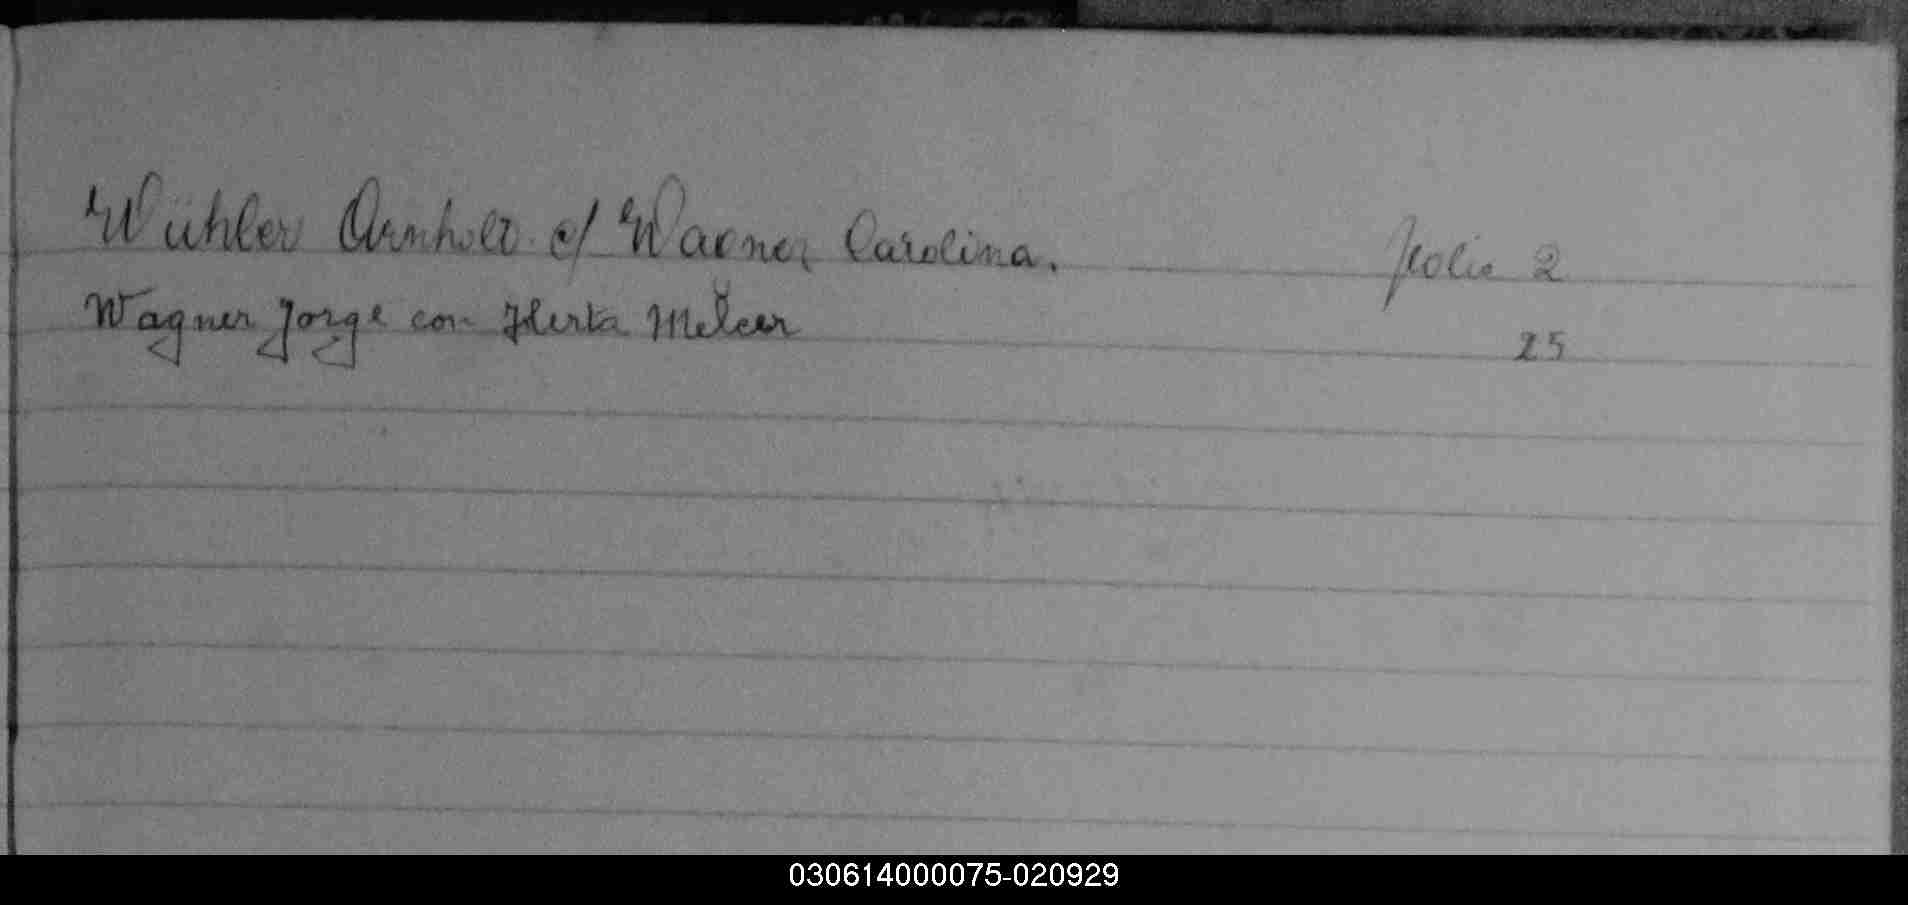 Wühler Arnholt c/ Wagner Carolina. Folio 2
Wagner Jorge con Herta Melcer 25
030614000075-020929